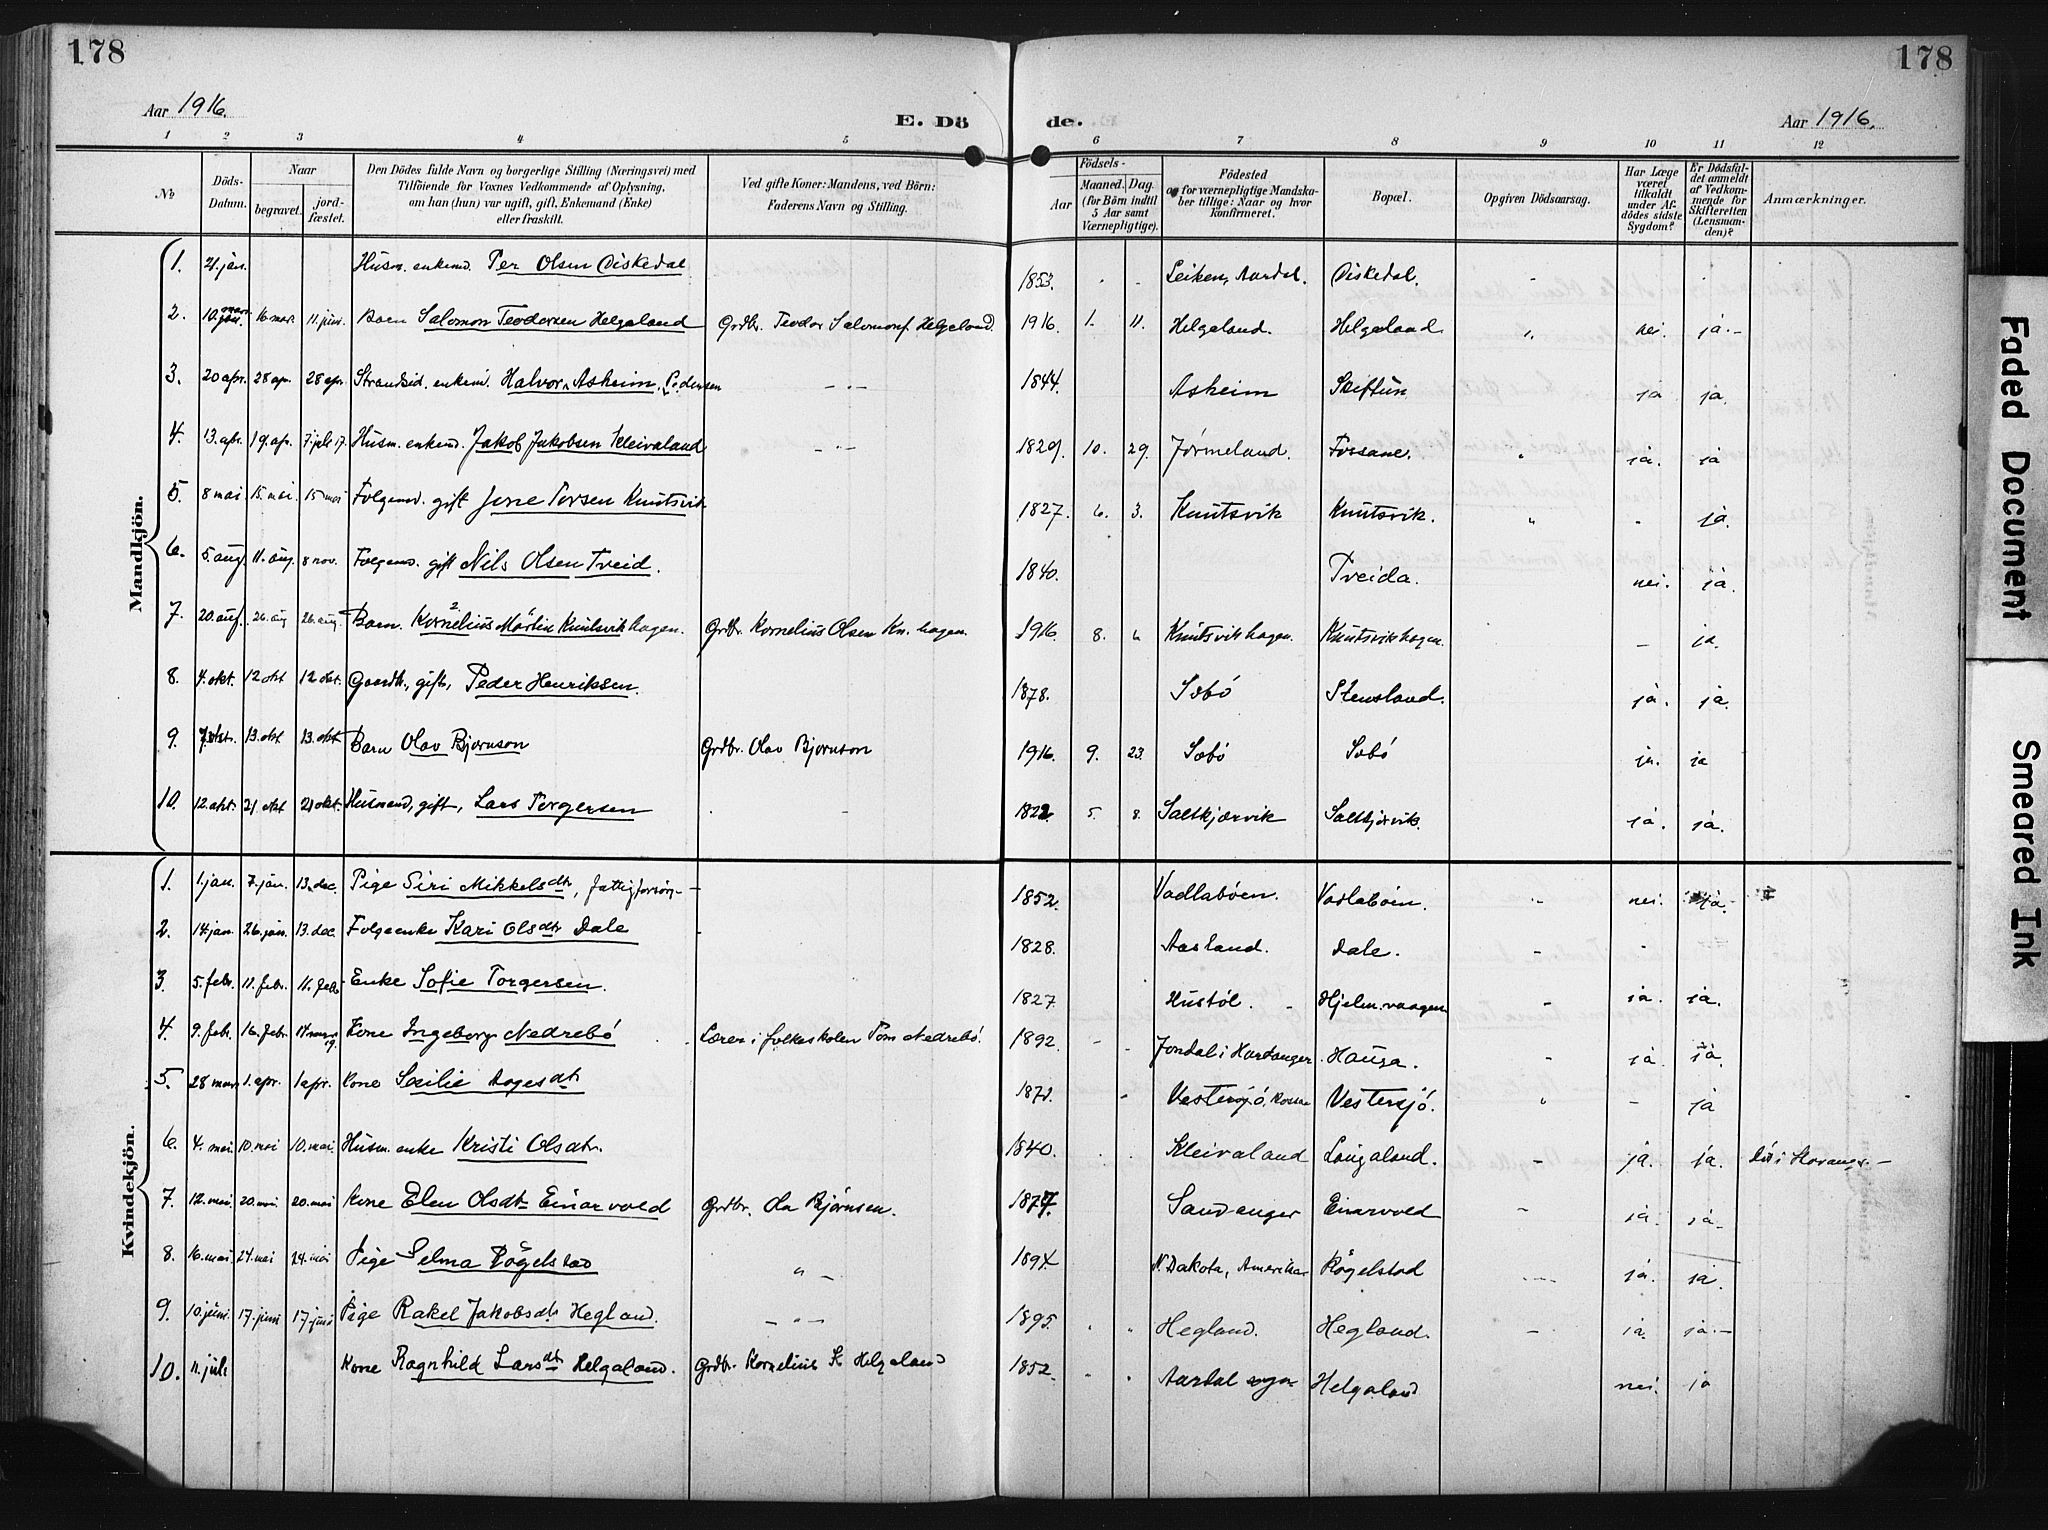 178
178
Aar 1916.
E. Dö
de.
Aar 1916.
1 2 3 4 5 6 7 8 9 10 11 12
№
Döds-Datum.
Naar
begravet.
jord-fæstet.
Den Dödes fulde Navn og borgerlige Stilling (Næringsvei) med
Tilföiende for Voxnes Vedkommende af Oplysning,
om han (hun) var ugift, gift, Enkemand (Enke)
eller fraskilt.
Ved gifte Koner: Mandens, ved Börn:
Faderens Navn og Stilling.
Födsels-
Aar
Maaned. Dag.
(for Börn indtil
5 Aar samt
Værnepligtige).
Födested
og for værnepligtige Mandska-
ber tillige: Naar og hvor
konfirmeret.
Bopæl.
Opgiven Dödsaarsag.
Har Læge
været
tilkaldt
under Af-
dödes sidste
Sygdom?
Er Dödsfal-
det anmeldt
af Vedkom-
mende for
Skifteretten
(Lensman-
den)?
Anmærkninger.
Mandkjön.
1. 21. jan. Husm. enkem. Per Olsen Oiskedal 1853. Leiken, Aardal. Oiskedal.
2. 10. mar. 16 mar. 11. juni. Barn Salomon Teodorsen Helgaland Grdbr. Teodor Salomons. Helgeland. 1916. 1. 11. Helgaland. Helgaland nei. ja.-
3. 20 apr. 28 ap. 28 apr. Strandsid. enkem. Halvor Asheim, Pedersen 1844. Asheim Skiftun ja ja.
4. 13. apr. 19. ap. 7. juli 17. Husm. enkemd. Jakob Jakobsen Kleivaland 1829. 10. 29. Jørmeland. Fossane. ja. ja
5. 8 mai 15. mai. 15 mai Folgemd. gift Jone Torsen Knutsvik. 1827. 6. 3. Knutsvik Knutsvik. ja.
6. 5. aug. 11. aug. 8 nov. Folgemd. gift Nils Olsen Tveid. 1840. Tveida. nei. ja.
7. 20. aug. 26. aug 26. aug. Barn. Kornelius Martin Knutsvikhagen. Grdbr. Kornelius Olsen Kn. hagen. 1916. 8. 6 Knutsvikhagen. Knutsvikhagen. - ja.
8. 4. okt. 12 okt 12 okt. Gaardbr, gift, Peder Henriksen. 1878. Søbø Stensland. ja. ja.
9. 7. okt. 13. okt 13. okt Barn Olav Bjørnson Grdbr. Olav Bjørnson 1916. 9. 23. Søbø Søbø ja. ja
10. 12. okt. 21 okt 21 okt. Husmand, gift, Lars Torgersen 1822. 5. 8. Saltkjærvik Saltkjærvik. ja. ja.
Kvindekjön.
1. 1. jan. 7. jan. 13. dec. Pige Siri Mikkelsdtr, fattigforsørg- 1852. Vadlabøen. Vadlabøen. nei. ja.
2. 14 jan. 26. jan. 13. dec. Folgeenke Kari Olsdtr Dale 1828. Aasland. Dale.
3. 5. febr. 11. febr. 11. feb. Enke Sofie Torgersen. 1827. Hustøl. Hjelm.vaagen ja. ja.
4. 9. feb. 16. febr. Kone Ingeborg Nedrebø Lærer i folkeskolen Tom Nedrebø. 1892. Jondal i Hardanger. Hauga. ja. ja.
5. 28 mar. 1. apr. 1 apr. Kone Secilie Aagesdtr Vestersjø. Vestersjø. - ja
6. 4. mai 10. mai 10. mai. Husm. enke Kristi Olsdtr. 1840. Kleivaland Langaland. ja. ja. Død i Stavanger.-
7. 12. mai. 20. mai. 20. mai Kone Elen Olsdtr Einarvold Grdbr. Ola Bjørnsen. 1877. Sandanger Einarvold ja. ja.
8. 16. mai. 24. mai 24. mai Pige Selma Røgelstad 1894. N. Dakota, Amerika Røgelstad ja. ja.
9. 10. juni. 17. juni 17 juni Pige Rakel Jakobsdtr Hegland. 1895. Hegland. Hegland. ja. ja.-
10. 11. juli Kone Ragnhild Larsdtr Helgaland. Grdbr. Kornelius K Helgaland 1852. Aardal sogn Helgaland nei. ja
Faded Document
Smeared Ink